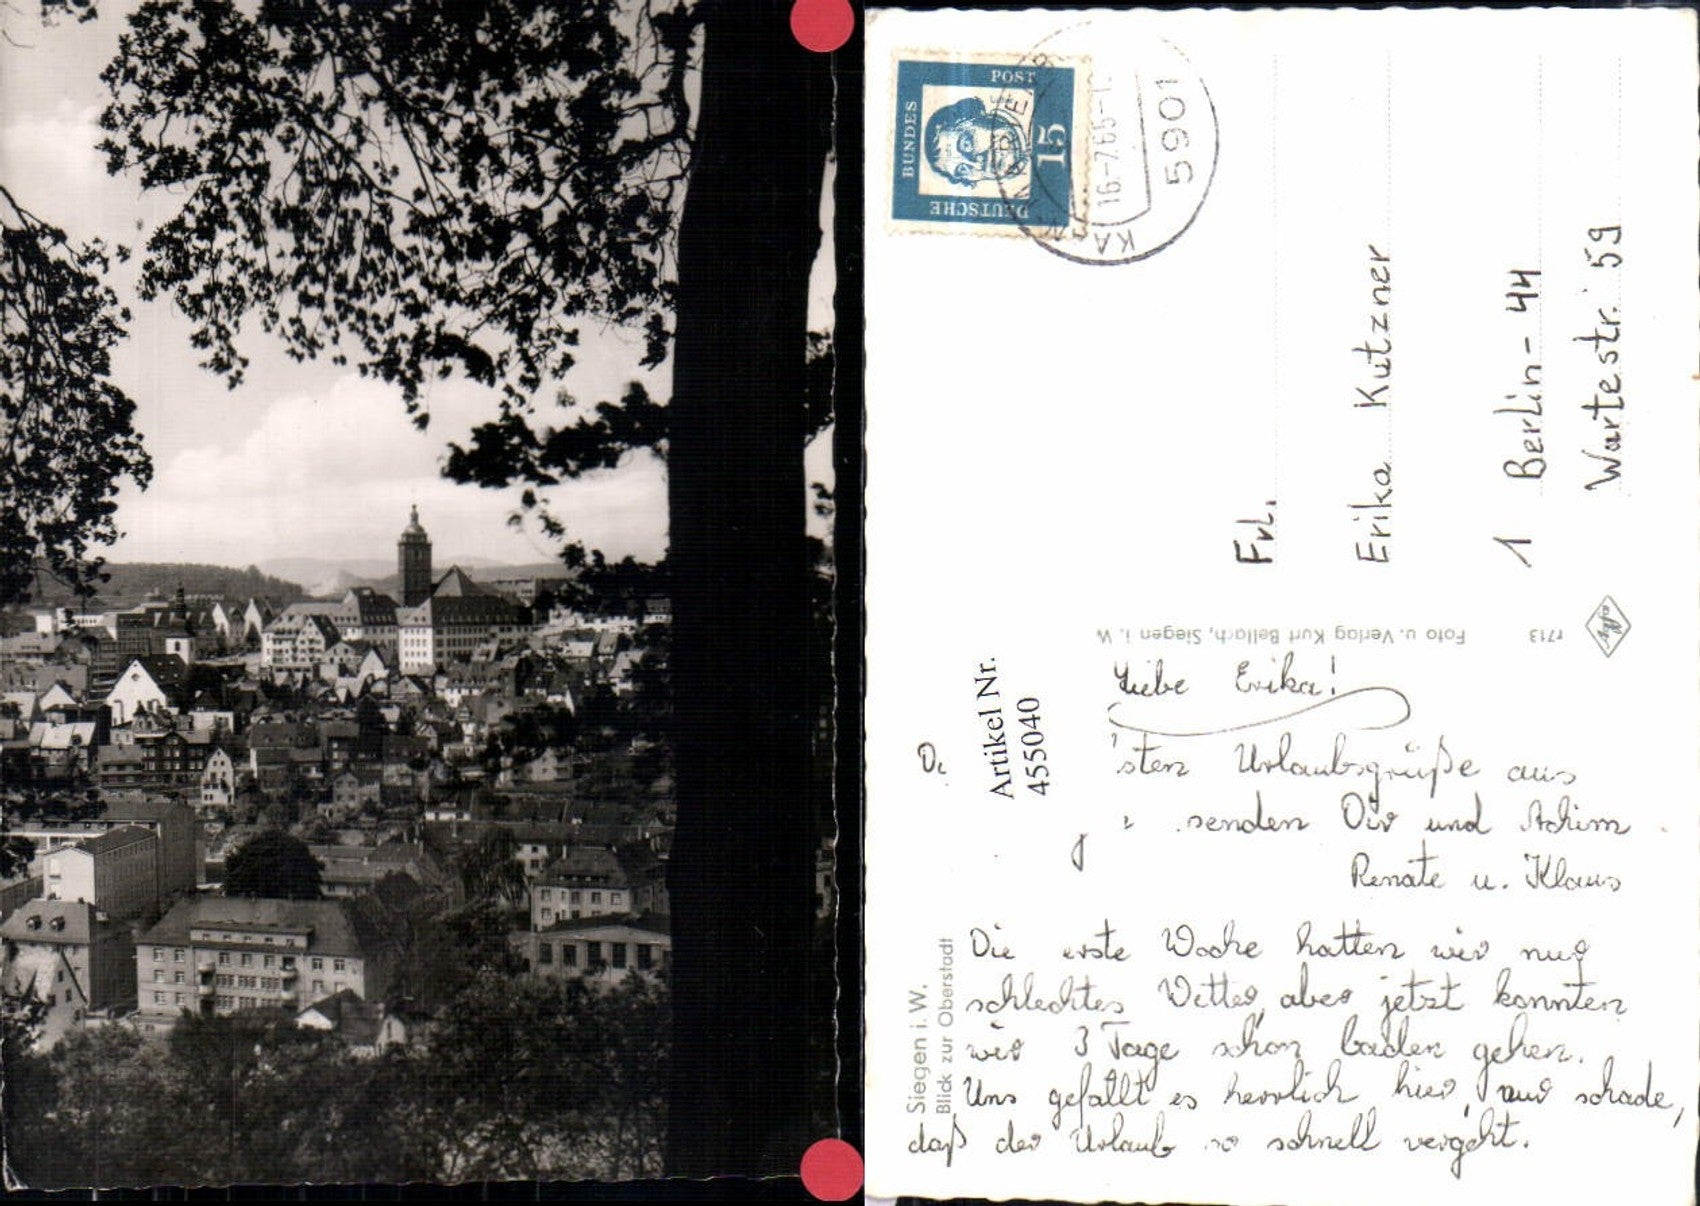 DEUTSCHE
BUNDES
POST
15
16.-7.65-1
5901
Frl.
Erika Kutzner
1 Berlin-44
Wartestr. 59
Foto u. Verlag Kurt Bellach, Siegen i. W.
r713
Agfa
Artikel Nr.
455040
Liebe Erika!
D
sten Urlaubsgrüße aus
senden Dir und Achim
Renate u. Klaus
Die erste Woche hatten wir nur
schlechtes Wetter, aber jetzt konnten
wir 3 Tage schon baden gehen.
Uns gefällt es herrlich hier, nur schade,
daß der Urlaub so schnell vergeht.
Siegen i. W.
Blick zur Oberstadt